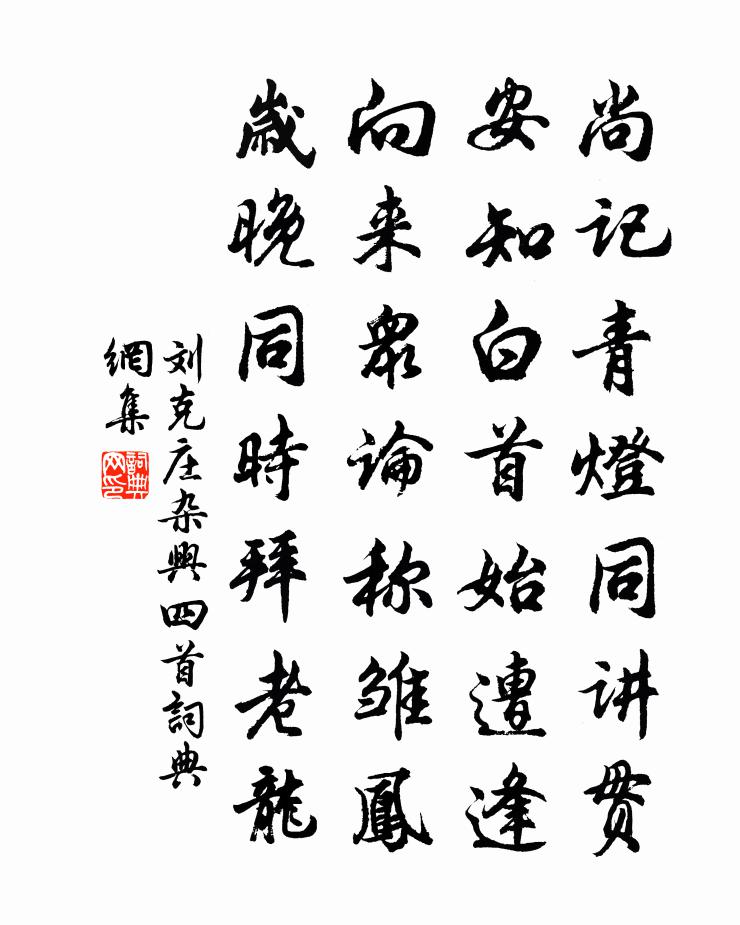 尚记青燈同讲贯
安知白首始遭逢
向来眾論称雏鳳
歳晚同時拜老龍
刘克庄杂興四首詞典
網集
詞典
网印